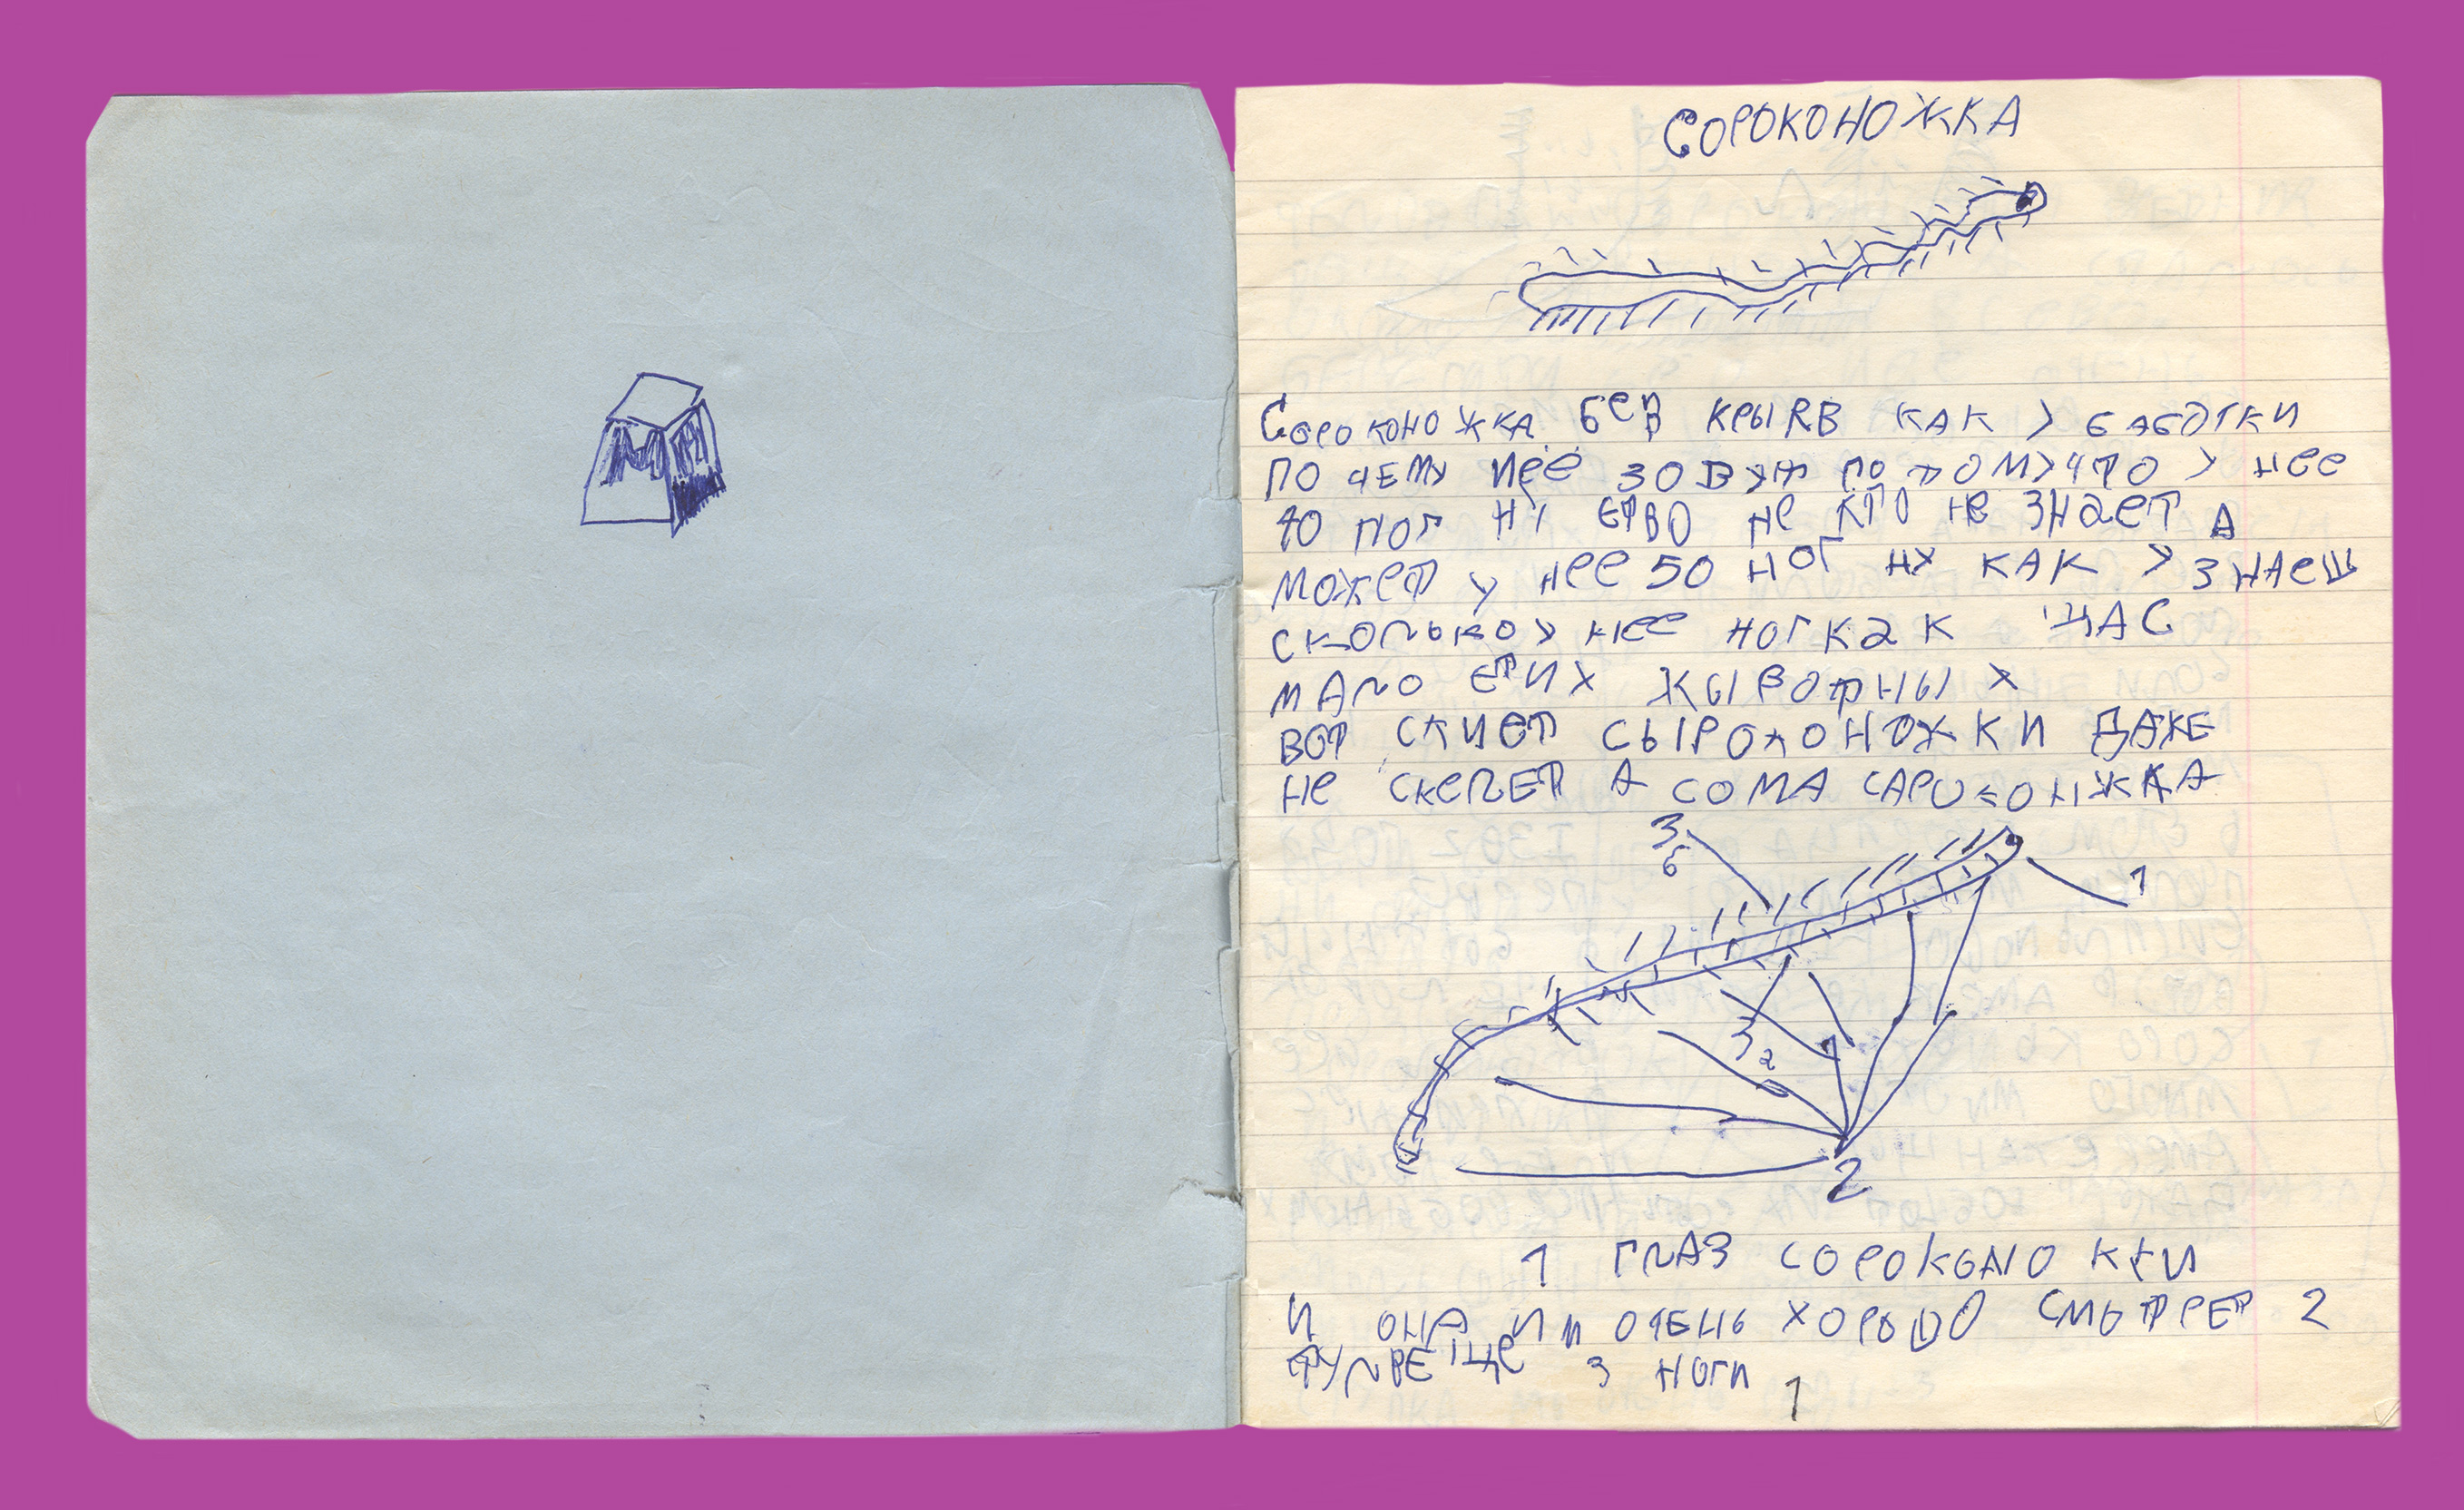 СОРОКОНОЖКА
Сороконожка без КРЫЛВ КАК У БАБОТКИ
ПО ЧЕМУ ИЕЕ ЗОВУТ ПО ТОМУ ЧТО У НЕЕ
40 НОГ НУ ЕТВО НЕ КТО НЕ ЗНАЕТ А
МОЖЕТ У НЕЕ 50 НОГ НУ КАК У ЗНАЕШ
СКОЛЬКО У НЕЕ НОГ КАК ЩАС
МАЛО ЕТИХ ЖЫВОТНЫХ
ВОТ СКИЕТ СЫРОКОНОЖКИ ДАЖЕ
НЕ СКЕЛЕТ А СОМА САРОКОНЖКА
3
6
1
3
2
2
1 ГЛАЗ СОРОКОНОЖКИ
И ОНА ИМ ОЧЕНЬ ХОРОШО СМОТРЕТ 2
ТУЛВЕЩЕ 3 НОГИ
1